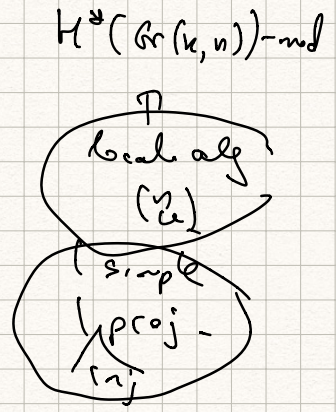 H*(Gr(k,n))-mod
Π
local alg
(n k)
1 simple
1 proj.
inj